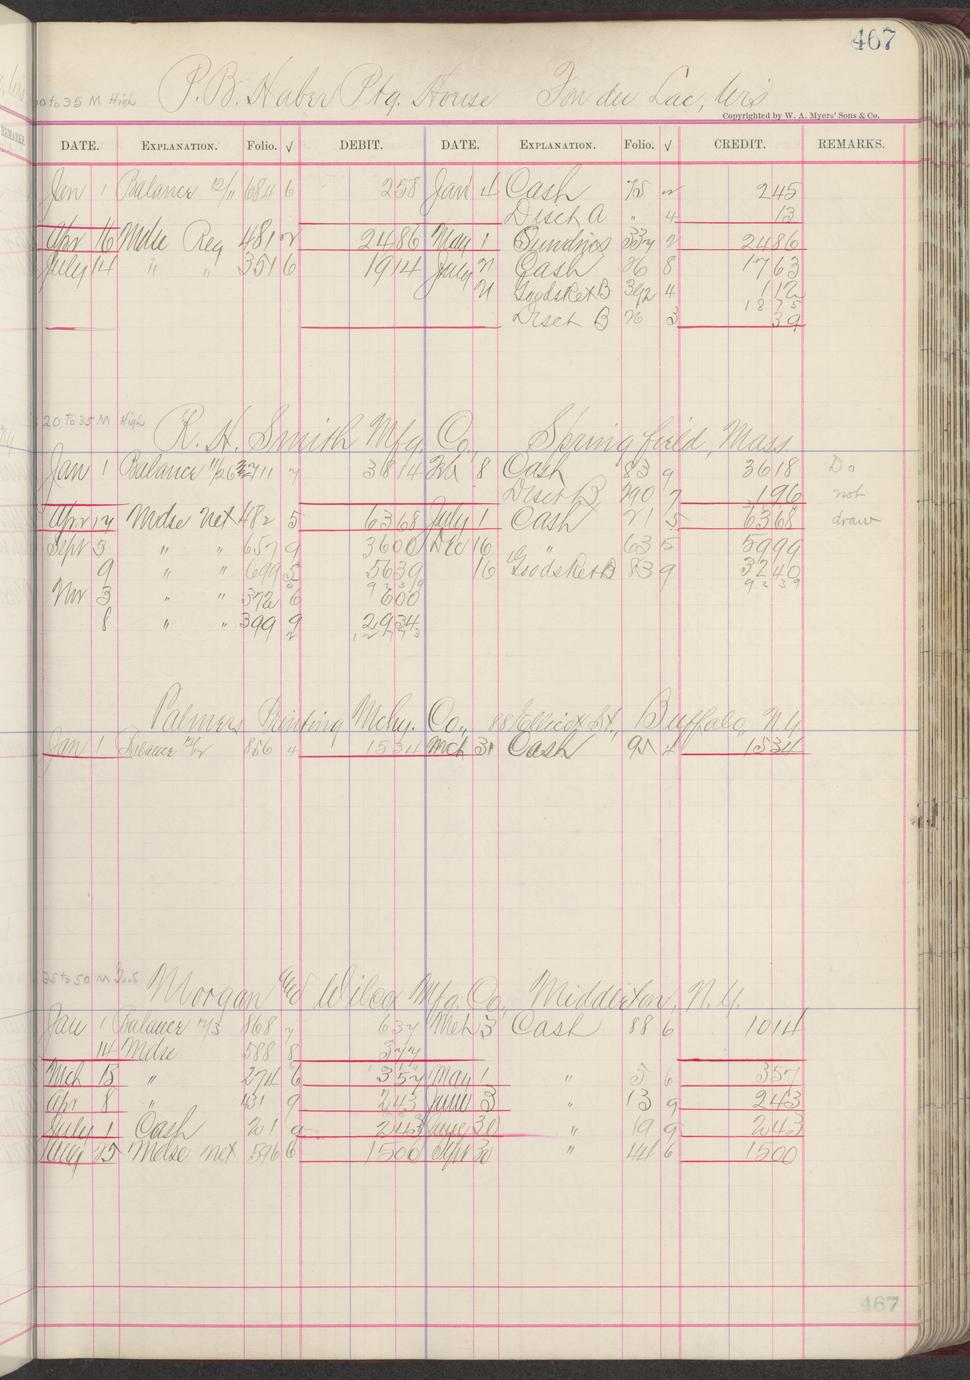 467
P. B. Haber Ptg. House Fon du Lac, Wis
to 35 M High
Copyrighted by W. A. Myers' Sons & Co.
REMARKS.
DATE. EXPLANATION. Folio. √ DEBIT. DATE. EXPLANATION. Folio. √ CREDIT. REMARKS.
Jan 1 Balance 12/11 684 6 258 Jan 4 Cash 75 2 245
Disct A " 4 13
Apr 16 Mdse Reg 481 2 2486 May 1 Sundries 2 2486
July 14 " " 351 6 1914 July 21 Cash 36 8 1763
21 Goodsket B 392 4 112
18 75
Disct B 26 3 39
20 to 35 M High
R. H. Smith Mfg. Co., Springfield, Mass
Jan 1 Balance 11/26 711 7 3814 Feb 8 Cash 83 9 3618 Do
Disct B 290 7 196 not
Apr 17 Mdse Net 482 5 6368 July 1 Cash 21 5 6368 draw
Sept 5 " " 657 9 3600 Dec 16 " 63 5 5999
9 " " 699 5 5639 16 Goodsket B 83 9 3240
9 2 3 9 9 2 3 9
Nov 3 " " 372 6 600
8 " " 399 9 2934
Palmers Printing Mchy. Co., 88 Ellicott St., Buffalo, N.Y.
Jan 1 Balance 856 4 1534 Mch 31 Cash 95 4 1534
35 to 50 M Good
Morgan & Wilcox Mfg. Co., Middleton, N.Y.
Jan 1 Balance 12/3 868 7 637 Mch 3 Cash 88 6 1014
14 Mdse 588 8 377
Mch 13 " 274 6 357 May 1 " 5 6 357
Apr 8 " 431 9 243 June 3 " 13 9 243
July 1 Cash 21 9 243 June 30 " 19 9 243
Aug 25 Mdse net 596 6 1500 Sept 30 " 44 6 1500
467